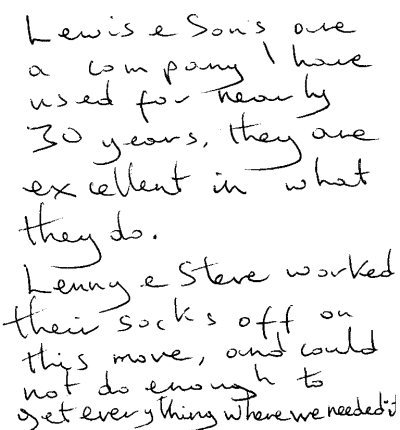 Lewis e Son's are
a company I have
used for nearly
30 years, they are
excellent in what
they do.
Lenny e Steve worked
their socks off on
this move, and could
not do enough to
get everything where we needed it